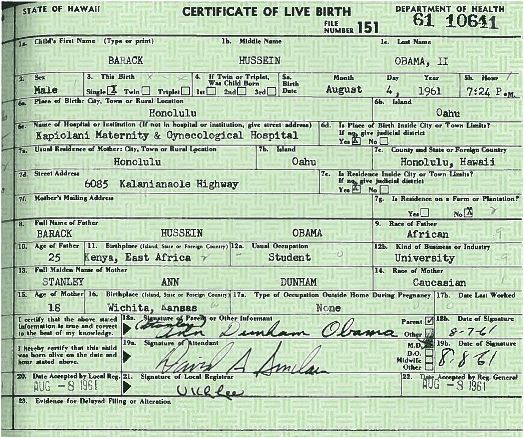 STATE OF HAWAII CERTIFICATE OF LIVE BIRTH DEPARTMENT OF HEALTH
FILE NUMBER 151 61 10641
1a. Child's First Name (Type or print) 1b. Middle Name 1c. Last Name
BARACK HUSSEIN OBAMA, II
2. Sex 3. This Birth 4. If Twin or Triplet, Was Child Born 5a. Birth Date Month Day Year 5b. Hour
Male Single X Twin Triplet 1st 2nd 3rd August 4, 1961 7:24 P.M.
6a. Place of Birth: City, Town or Rural Location 6b. Island
Honolulu Oahu
6c. Name of Hospital or Institution (If not in hospital or institution, give street address) 6d. Is Place of Birth Inside City or Town Limits? If no, give judicial district
Kapiolani Maternity & Gynecological Hospital Yes X No
7a. Usual Residence of Mother: City, Town or Rural Location 7b. Island 7c. County and State or Foreign Country
Honolulu Oahu Honolulu, Hawaii
7d. Street Address 7e. Is Residence Inside City or Town Limits? If no, give judicial district
6085 Kalanianaole Highway Yes X No
7f. Mother's Mailing Address 7g. Is Residence on a Farm or Plantation?
Yes No X
8. Full Name of Father 9. Race of Father
BARACK HUSSEIN OBAMA African 9
10. Age of Father 11. Birthplace (Island, State or Foreign Country) 12a. Usual Occupation 12b. Kind of Business or Industry
25 Kenya, East Africa Student University
13. Full Maiden Name of Mother 14. Race of Mother
STANLEY ANN DUNHAM Caucasian
15. Age of Mother 16. Birthplace (Island, State or Foreign Country) 17a. Type of Occupation Outside Home During Pregnancy 17b. Date Last Worked
18 Wichita, Kansas None
I certify that the above stated information is true and correct to the best of my knowledge. 18a. Signature of Parent or Other Informant Parent Other 18b. Date of Signature
(Stanley) Ann Dunham Obama 8-7-61
I hereby certify that this child was born alive on the date and hour stated above. 19a. Signature of Attendant M.D. D.O. Midwife Other 19b. Date of Signature
David A Sinclair 8-8-61
20. Date Accepted by Local Reg. 21. Signature of Local Registrar 22. Date Accepted by Reg. General
AUG -8 1961 AUG -8 1961
23. Evidence for Delayed Filing or Alteration